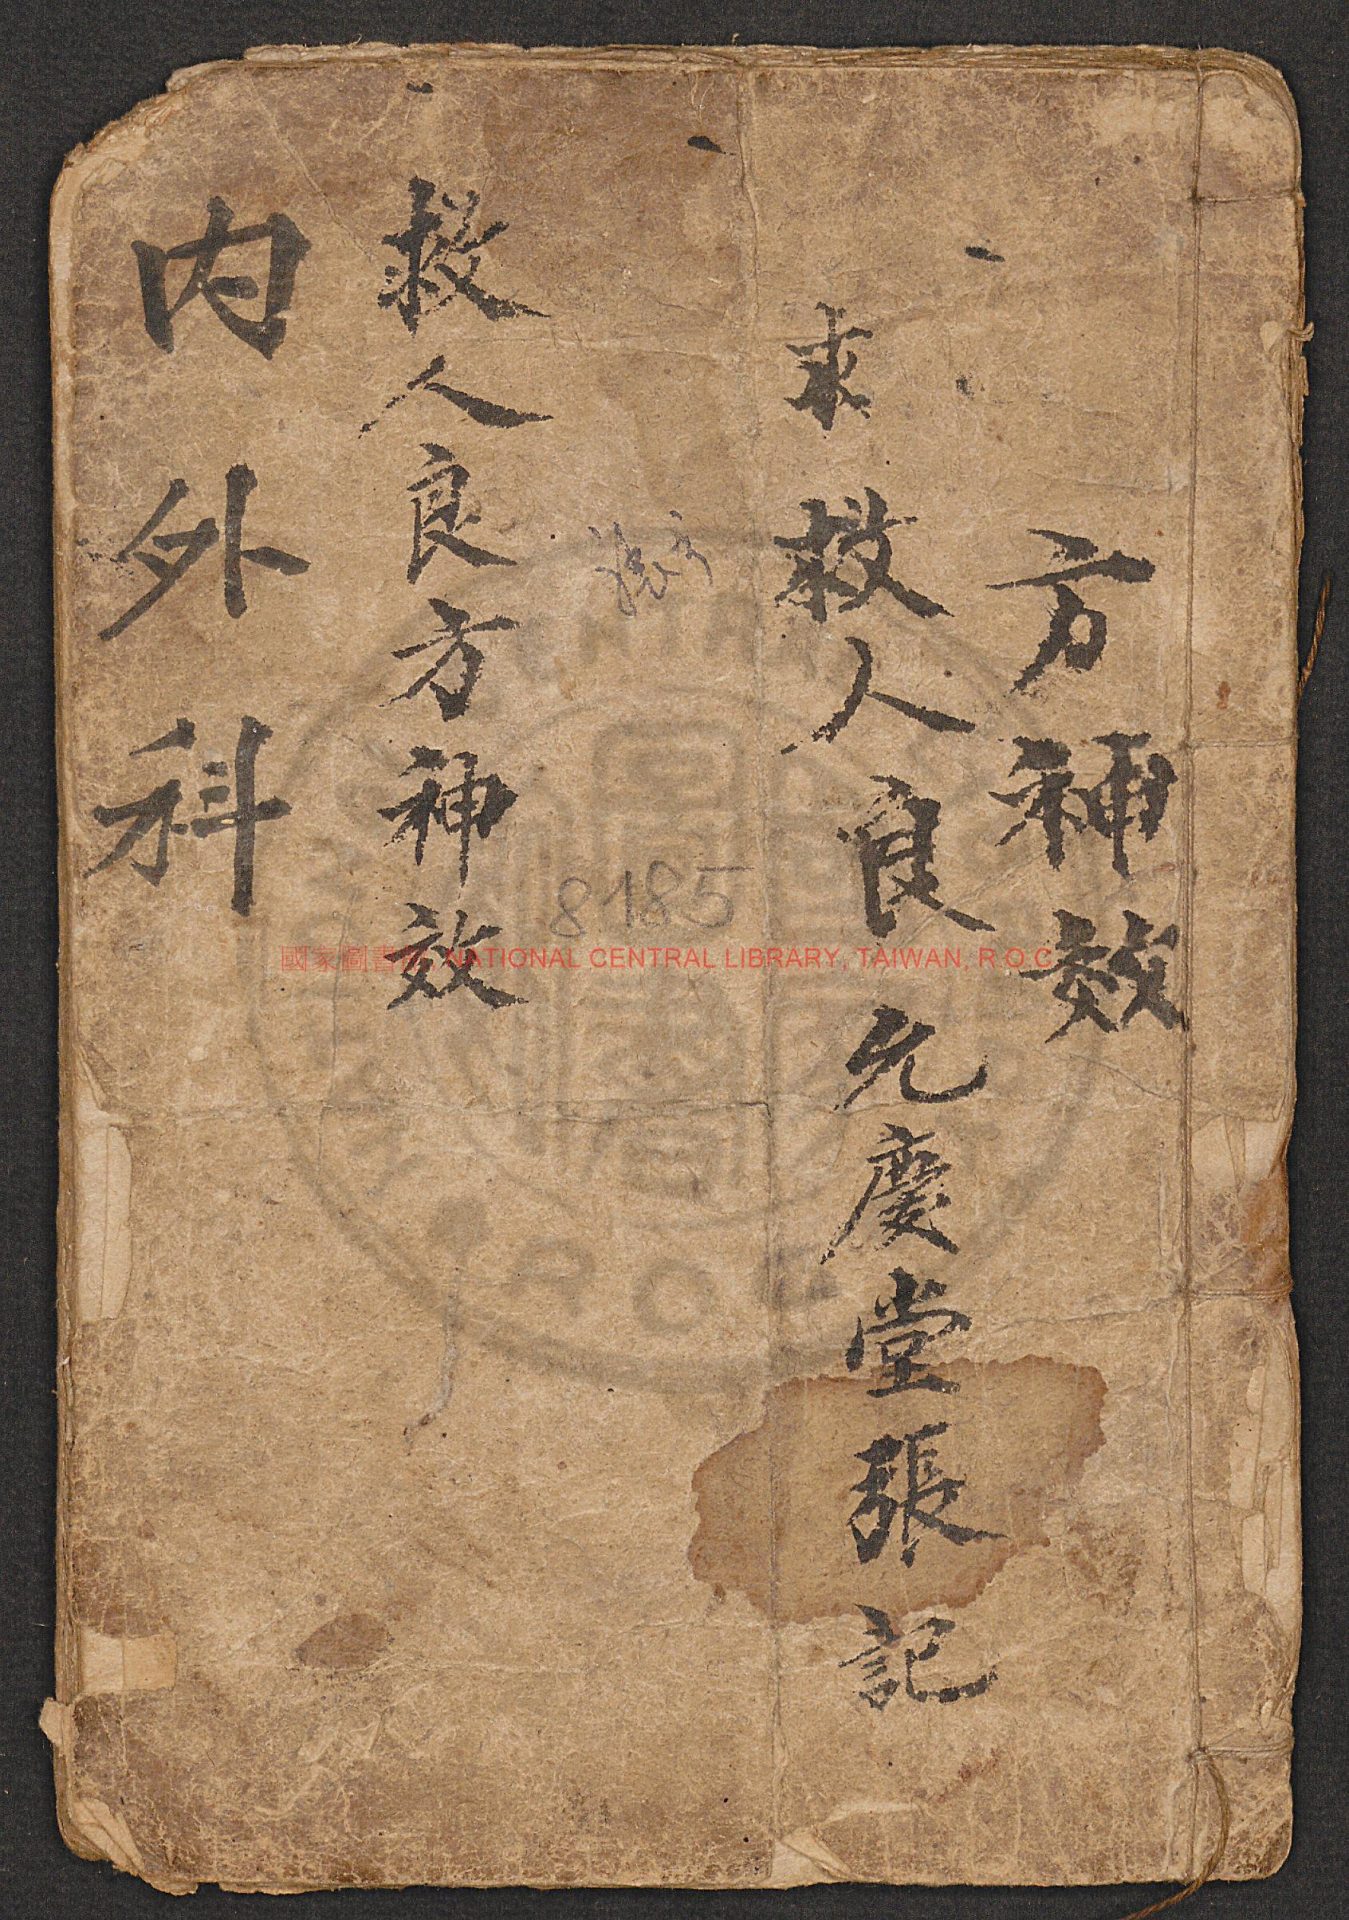 方神效
求救人良允慶堂張記
救人良方神效
內外科
8185
國家圖書館 NATIONAL CENTRAL LIBRARY, TAIWAN, R.O.C